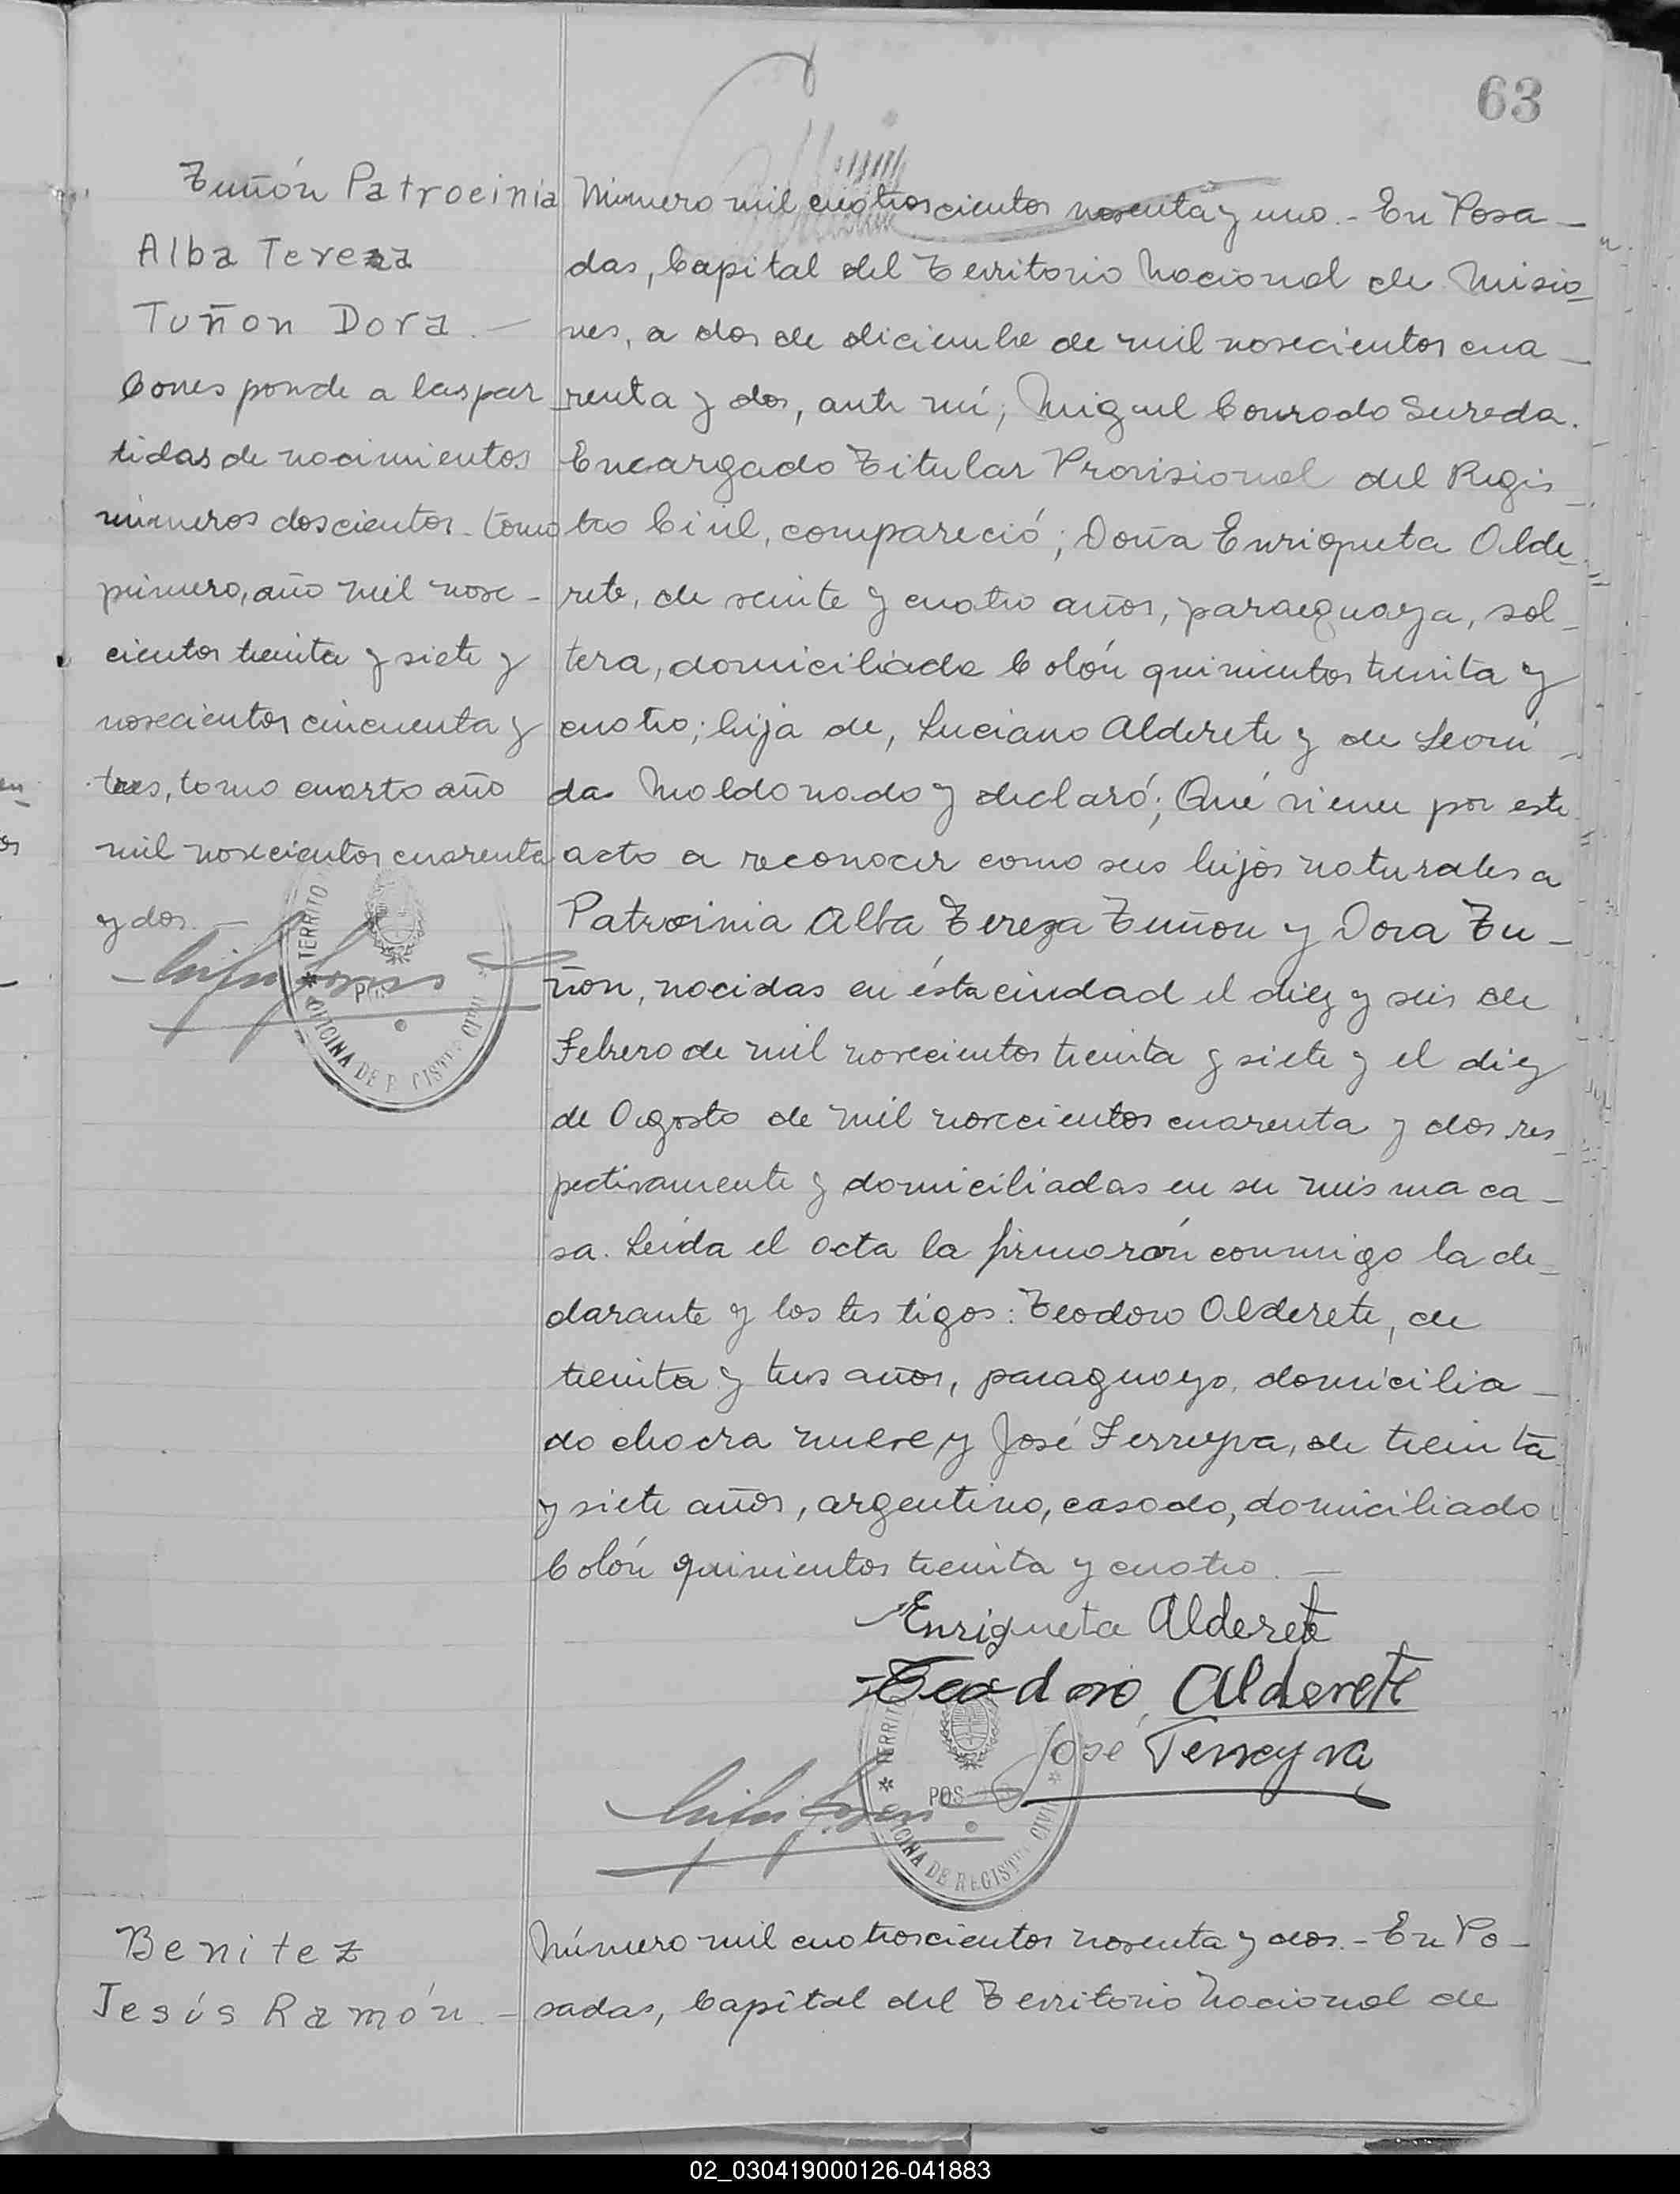 63
Tuñón Patrocinia
Alba Tereza
Tuñon Dora. —
Corresponde a las par
tidas de nacimientos
números doscientos - tomo
primero, año mil nove -
cientos treinta y siete y
novecientos cincuenta y
tres, tomo cuarto año
mil novecientos cuarenta
y dos. —
TERRITO
POS
OFICINA DE REGISTRO CIVIL
Número mil cuatroscientos noventa y uno. - En Posa -
das, Capital del Territorio Nacional de Misio -
nes, a dos de diciembre de mil novecientos cua -
renta y dos, ante mí; Miguel Conrado Sureda.
Encargado Titular Provisional del Regis -
tro Civil, compareció; Doña Enriqueta Alde -
rete, de veinte y cuatro años, paraguaya, sol -
tera, domiciliada Colón quinientos treinta y
cuatro; hija de, Luciano Alderete y de Leoni -
da Maldonado y declaró; Qué viene por este
acto a reconocer como sus hijos naturales a
Patrocinia Alba Tereza Tuñon y Dora Tu -
ñon, nacidas en ésta ciudad el diez y seis de
Febrero de mil novecientos treinta y siete y el diez
de Agosto de mil novecientos cuarenta y dos res -
pectivamente y domiciliadas en su misma ca -
sa. Leída el acta la firmarán conmigo la de -
clarante y los testigos: Teodoro Alderete, de
treinta y tres años, paraguayo, domicilia -
do chacra nueve y José Ferreyra, de treinta
y siete años, argentino, casado, domiciliado
Colón quinientos treinta y cuatro. —
Enriqueta Alderete
Teodoro Alderete
José Ferreyra
TERRITO
POS
OFICINA DE REGISTRO CIVIL
Benitez
Jesús Ramón. -
Número mil cuatroscientos noventa y dos. - En Po -
sadas, Capital del Territorio Nacional de
02_030419000126-041883